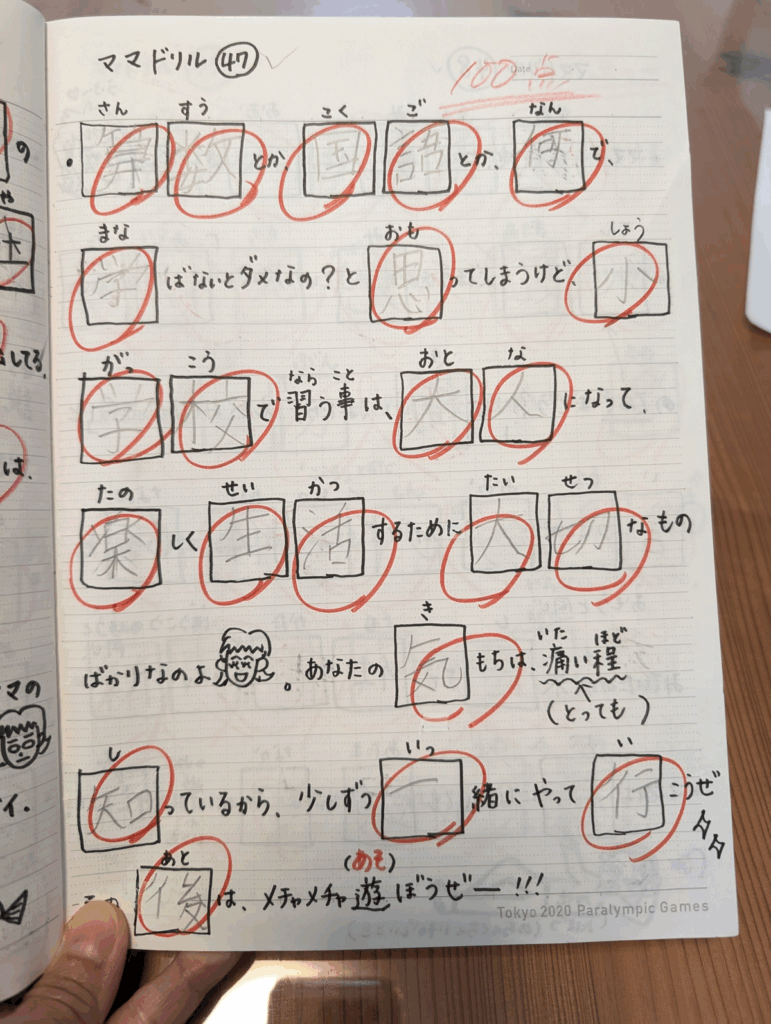 ママドリル ㊼
100点
さん すう こく ご なん
・算数とか、国語とか、何で、
まな おも しょう
学ばないとダメなの?と思ってしまうけど、小
がっ こう なら こと おと な
学校で習う事は、大人になって、
たの せい かつ たい せつ
楽しく生活するために大切なもの
き いた ほど
ばかりなのよ。あなたの気もちは、痛い程
(とっても)
し いっ い
知っているから、少しずつ一緒にやって行こうぜ
あと (あそ)
後は、メチャメチャ遊ぼうぜー!!!
Tokyo 2020 Paralympic Games
の
してる。
は、
マの
イ.